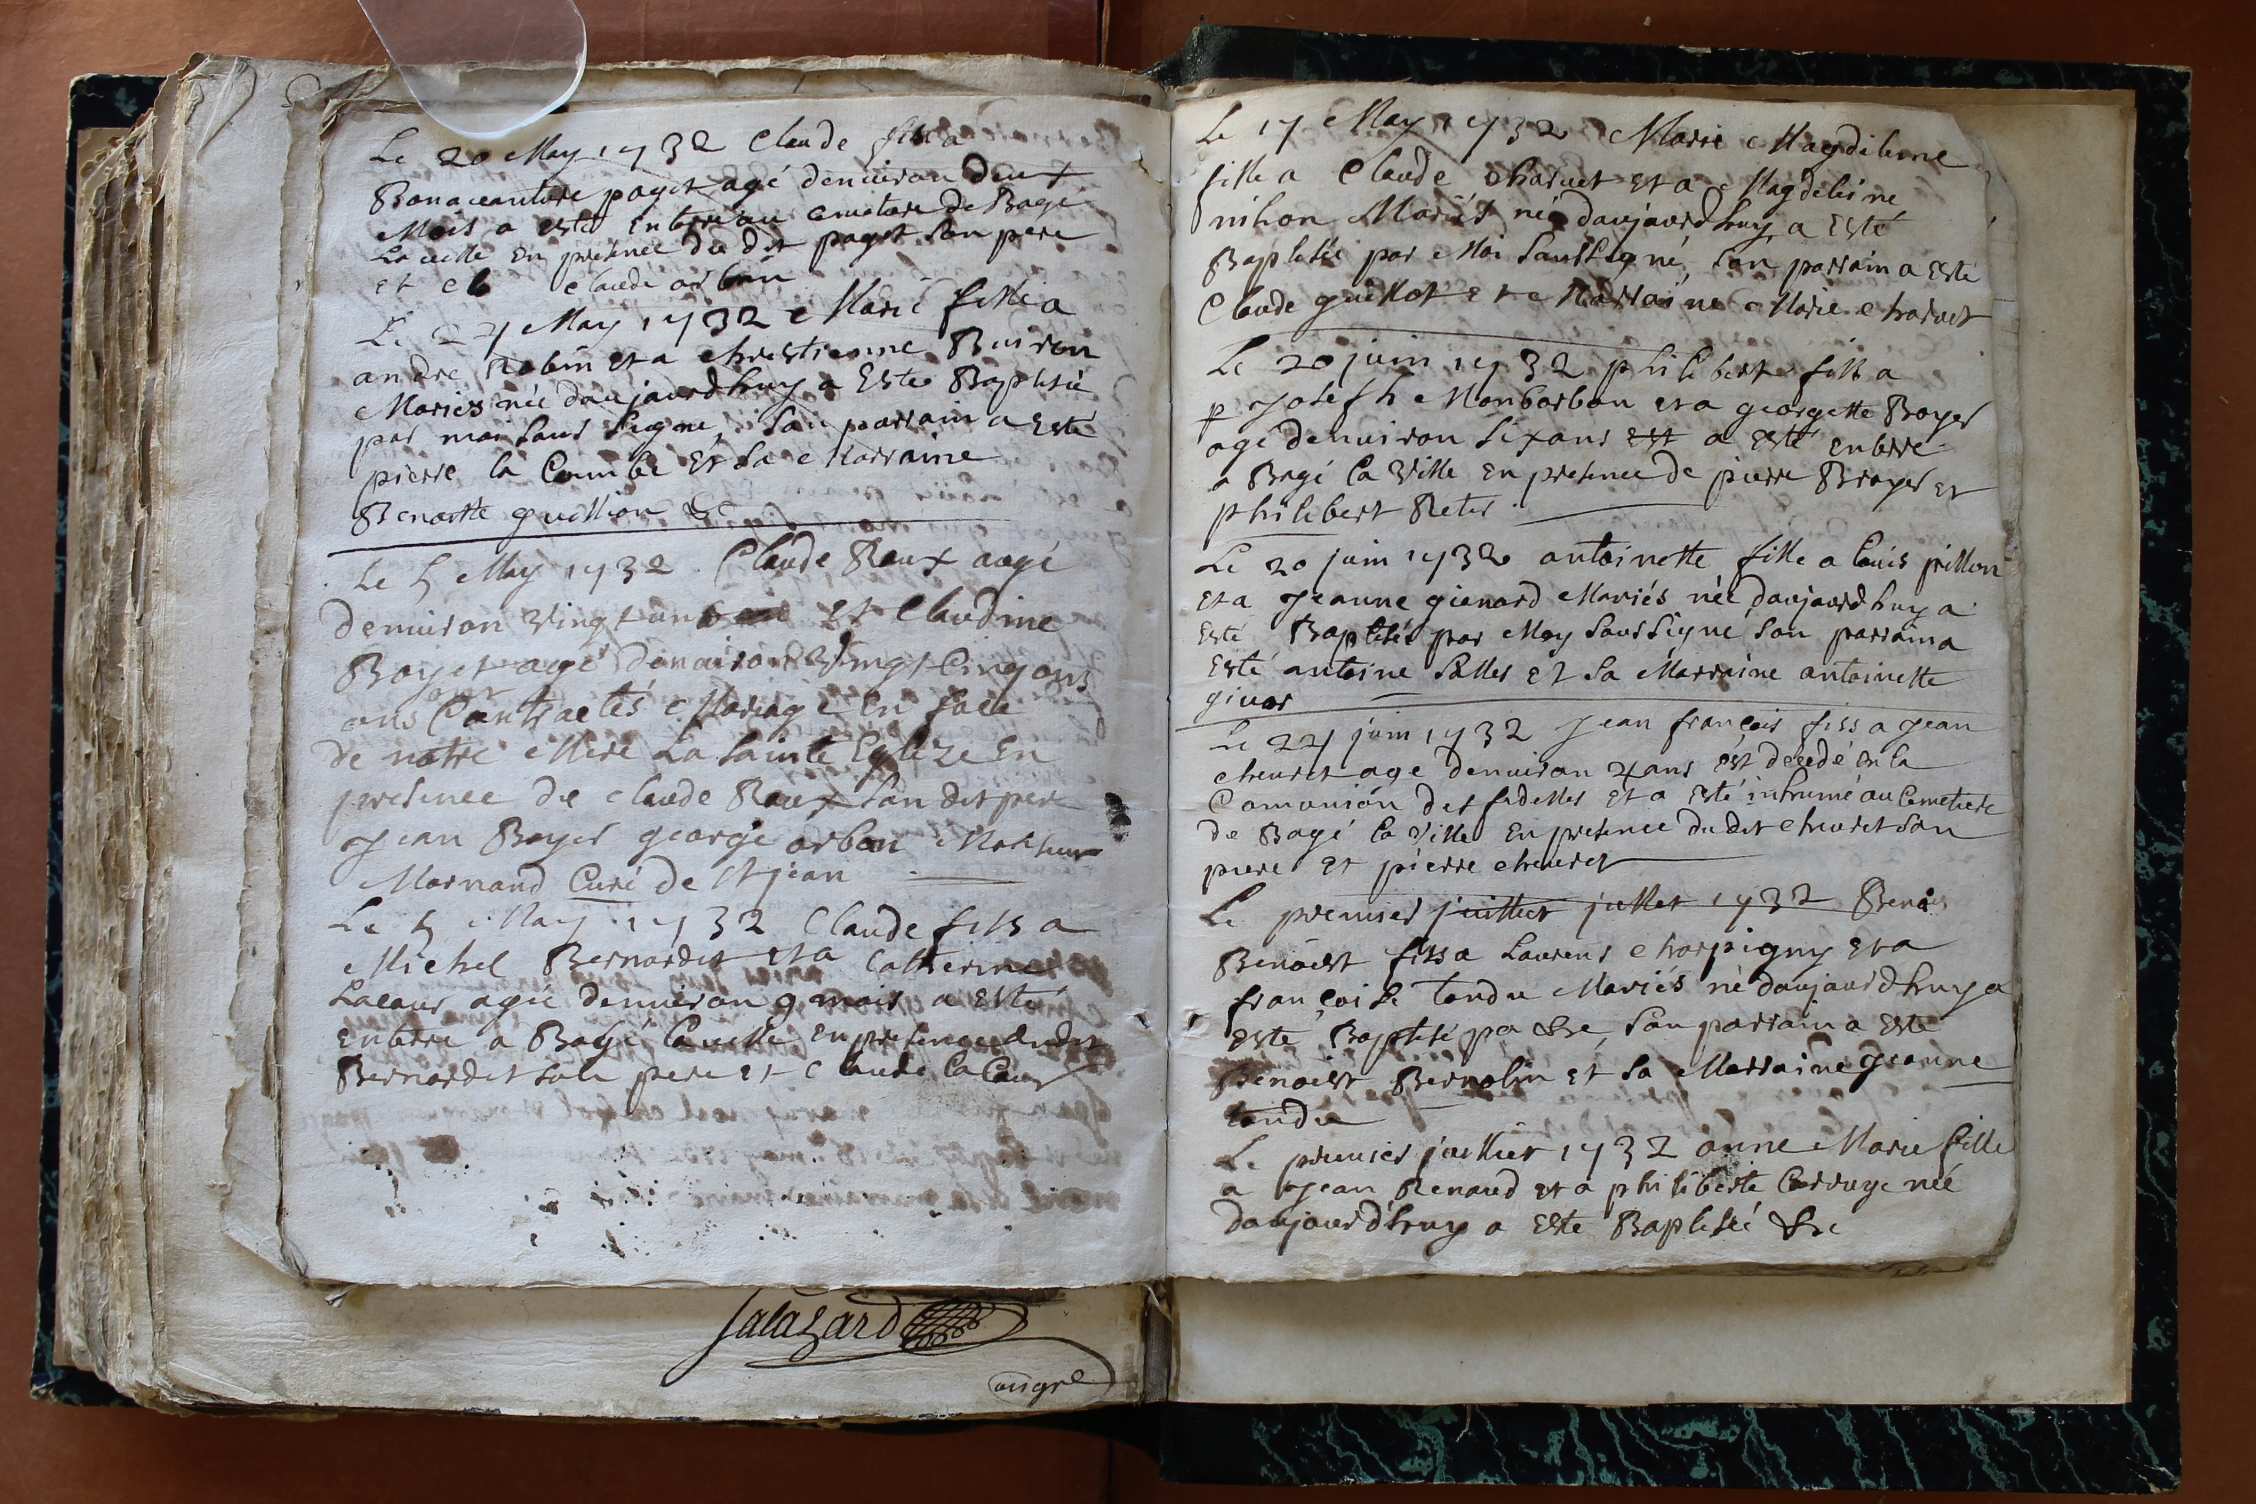 Le 20 May 1732 Claude fils a
Bonaveanture paget agé denuiron deux
Mois a esté enterré au cimetiere de Bagé
La ville En presence du dit paget son pere
et Claude orban
Le 27 May 1732 Marie fille a
andre Robin et a chrestienne Buiron
Mariés née daujaurdhuy a Esté Baptisée
par moi sous signé, son parrain a Esté
pierre la Coumbe Et sa Marraine
Benoitte guillion &c
Le 5 May 1732 Claude Roux aagé
denuiron vingt ans et Claudine
Boyer agé denuiron vingt Cinq ans
ans Contractés Mariage En face
de notre Mere La Sainte Eglize En
presence de Claude Roux son dit pere
Jean Boyer george orban
Marnand Curé de St jean
Le 5 May 1732 Claude fils a
Michel Bernardet et a Catherine
Lacour agée denuiron 9 mois a Esté
Enterré a Bagé Laville en presence dudit
Bernardet son pere et Claude la Cour
Salazard
Le 17 May 1732 Marie Magdelene
fille a Claude charuet et a Magdeleine
nihon Mariés née daujourdhuy a Esté
Baptisée par Moi Soussigné, son parrain a Esté
Claude guillot et Marraine Marie charuet
Le 20 juin 1732 philibert fils a
p Joseph Monbarbon et a georgette Boyer
agé denuiron six ans est a esté enterré
a Bagé la Ville En presence de pierre Broyer et
philibert Reter
Le 20 juin 1732 antoinette fille a Louis pillon
et a Jeanne gienard Mariés née daujourdhuy a
Esté Baptisée par Moy soussigné son parrain a
Esté antoine Salles et sa Marraine antoinette
givor
Le 27 juin 1732 Jean françois fils a Jean
cheuret age denuiron 2 ans est decedé en la
Comunion des fidelles et a esté inhumé au Cemetiere
de Bagé la ville En presence du dit cheuret son
pere et pierre cheuret
Le premier juillet juillet 1732 Benois
Benoist fils a Laurens charpigny et a
françoise tondu Mariés né daujourdhuy a
esté Baptisé pa &c, son parrain a Esté
Benoist Bernolin et sa Marraine Jeanne
tondu
Le premier juillet 1732 anne Marie fille
a Jean Renaud et a philiberte Carruge née
daujourdhuy a Esté Baptisée &c